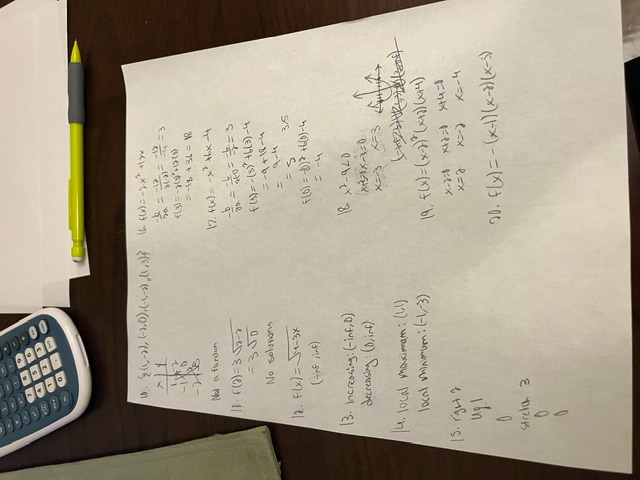 10. {(1,-2), (-2,0), (-1,-2), (1,3)}
x y
1 -2
-1 0
-2 3
Not a function
11. f(2)=3√2-2
=3√0
No solutions
12. f(x)=√4-3x
(-inf, inf)
13. Increasing: (-inf, 0)
decreasing: (0, inf)
14. local maximum: (1,1)
local minimum: (-1,-3)
15. right 2
up 1
0
stretch 3
0
0
16. f(x)=-2x²+12x
-b/2a = -12/2(-2) = -12/-4 = 3
f(3)=-2(3)²+12(3)
=-18+36=18
17. f(x)=-x²+6x-4
-b/2a = -6/2(-1) = -6/-2 = 3
f(3)=-(3)²+6(3)-4
=-9+18-4
=9-4
=5
3,5
f(0)=-(0)²+6(0)-4
=-4
18. x²-9<0
x+3=0 x-3=0
x=-3 x=3
19. f(x)=(x-2)²(x+2)(x+4)
x-2=0 x+2=0 x+4=0
x=2 x=-2 x=-4
20. f(x)=-(x-1)(x-2)(x-3)